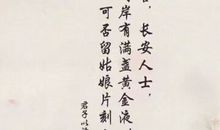 ，长安人士，
岸有满盏黄金液
可否留姑娘片刻
君子以